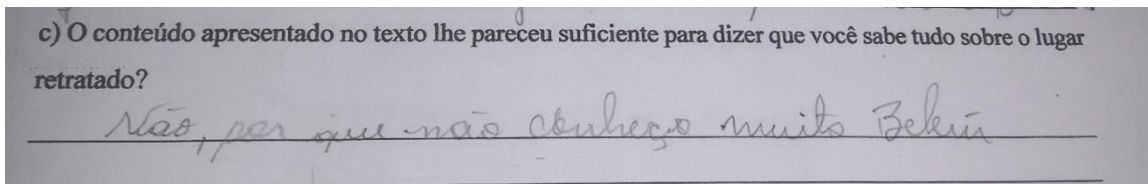 c) O conteúdo apresentado no texto lhe pareceu suficiente para dizer que você sabe tudo sobre o lugar
retratado?
Não, por que não conheço muito Belém